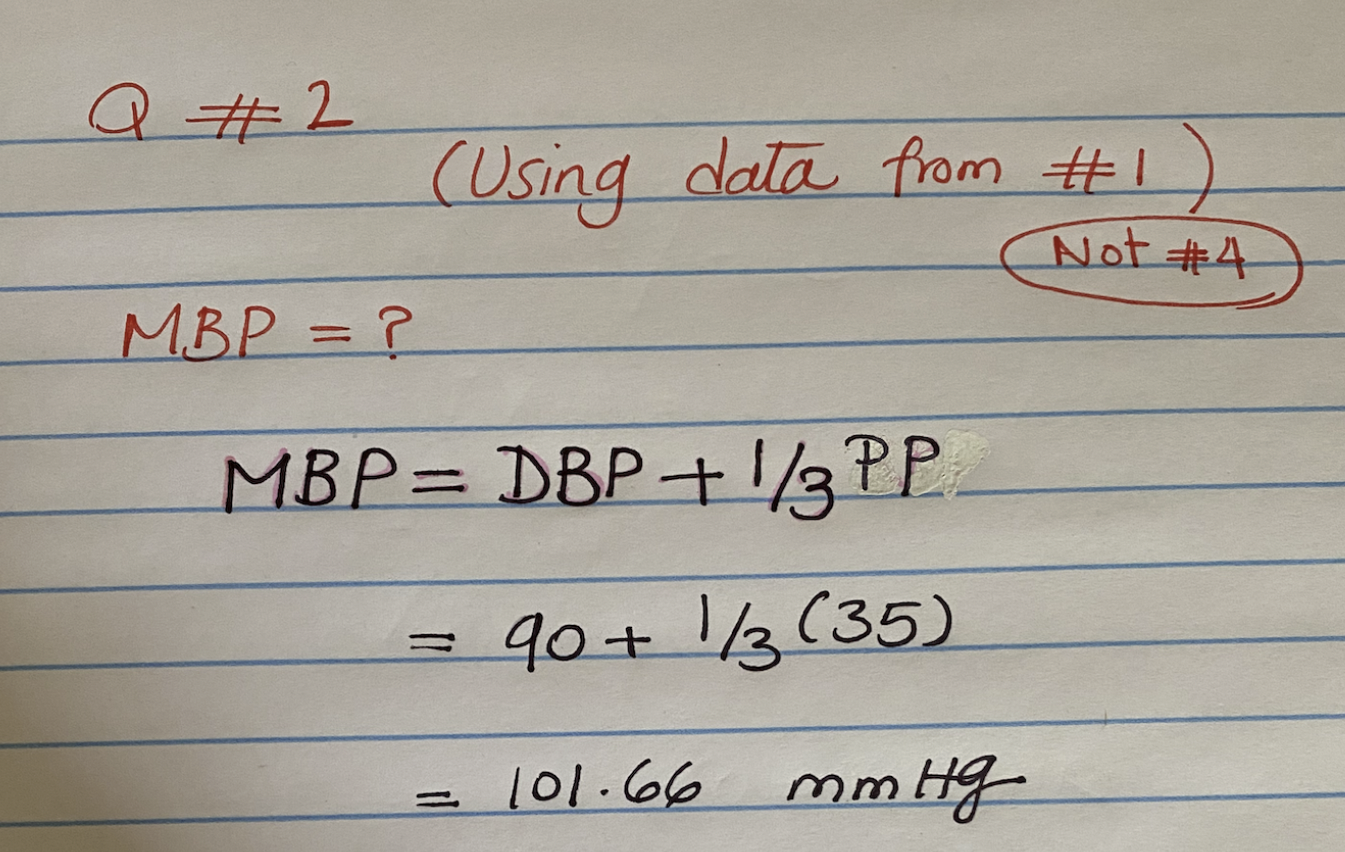 Q #2
(Using data from #1)
Not #4
MBP = ?
MBP = DBP + 1/3 PP
= 90 + 1/3 (35)
= 101.66 mmHg